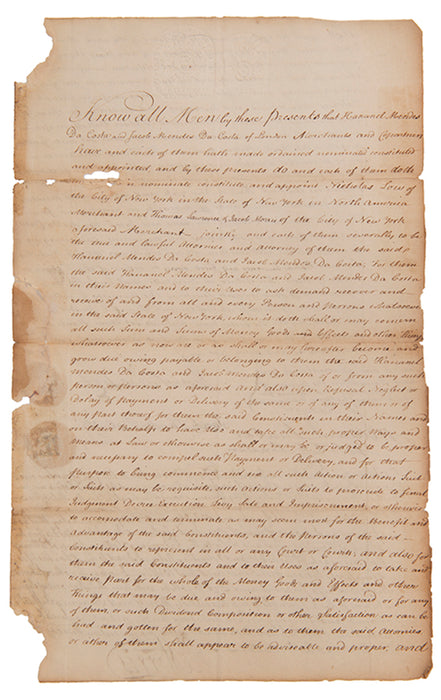 Know all Men by these Presents that Hananel Mendes
Da Costa and Jacob Mendes Da Costa of London Merchants and Copartners
have and each of them hath made ordained nominated constituted
and appointed, and by these presents do and each of them doth
nominate constitute and appoint Nicholas Low of
the City of New York in the State of New York in North America
Merchant and Thomas Lawrence & Jacob of the City of New York
aforesaid Merchant jointly and each of them severally to be
the true and Lawful Attornies and Attorney of them the said
Hananel Mendes Da Costa and Jacob Mendes Da Costa, for them
the said Hananel Mendes Da Costa and Jacob Mendes Da Costa
in their Names and to their Uses to ask demand recover and
receive of and from all and every Person and Persons whatsoever
in the said State of New York, whom it doth shall or may concern
all such Sum and Sums of Money Goods and Effects and other Things
whatsoever as now are or as shall or may hereafter become and
grow due owing payable or belonging to them the said Hananel
Mendes Da Costa and Jacob Mendes Da Costa of or from any such
person or persons as aforesaid And also upon Refusal Neglect or
Delay of payment or Delivery of the same or of any of them or
any part thereof for them the said Constituents in their Names and
on their Behalfs to have Use and take all such proper Ways and
Means at Law or otherwise as shall or may be or judged to be proper
and necessary to compel such Payment or Delivery, and for that
purpose to bring commence and sue all such Action or Actions Suit
or Suits as may be requisite, such Actions or Suits to prosecute to final
Judgment Decree Execution Levy Sale and Imprisonment, or otherwise
to accomodate and terminate as may seem most for the Benefit and
advantage of the said Constituents, and the Persons of the said
Constituents to represent in all or any Court or Courts, and also for
them the said Constituents and to their Uses as aforesaid to take and
receive Part for the whole of the Money Goods and Effects and other
Things that may be due and owing to them as aforesaid or for any
of them, or such Dividend Composition or other Satisfaction as can be
had and gotten for the same, and as to them the said Attornies
or either of them shall appear to be adviseable and proper, and